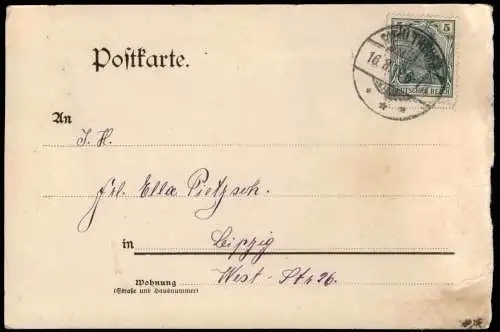 Postkarte.
5
DEUTSCHES REICH
16.8.
An
I. H.
Frl. Ella Pietzsch.
in Leipzig
Wohnung West-Str 26.
(Straße und Hausnummer)